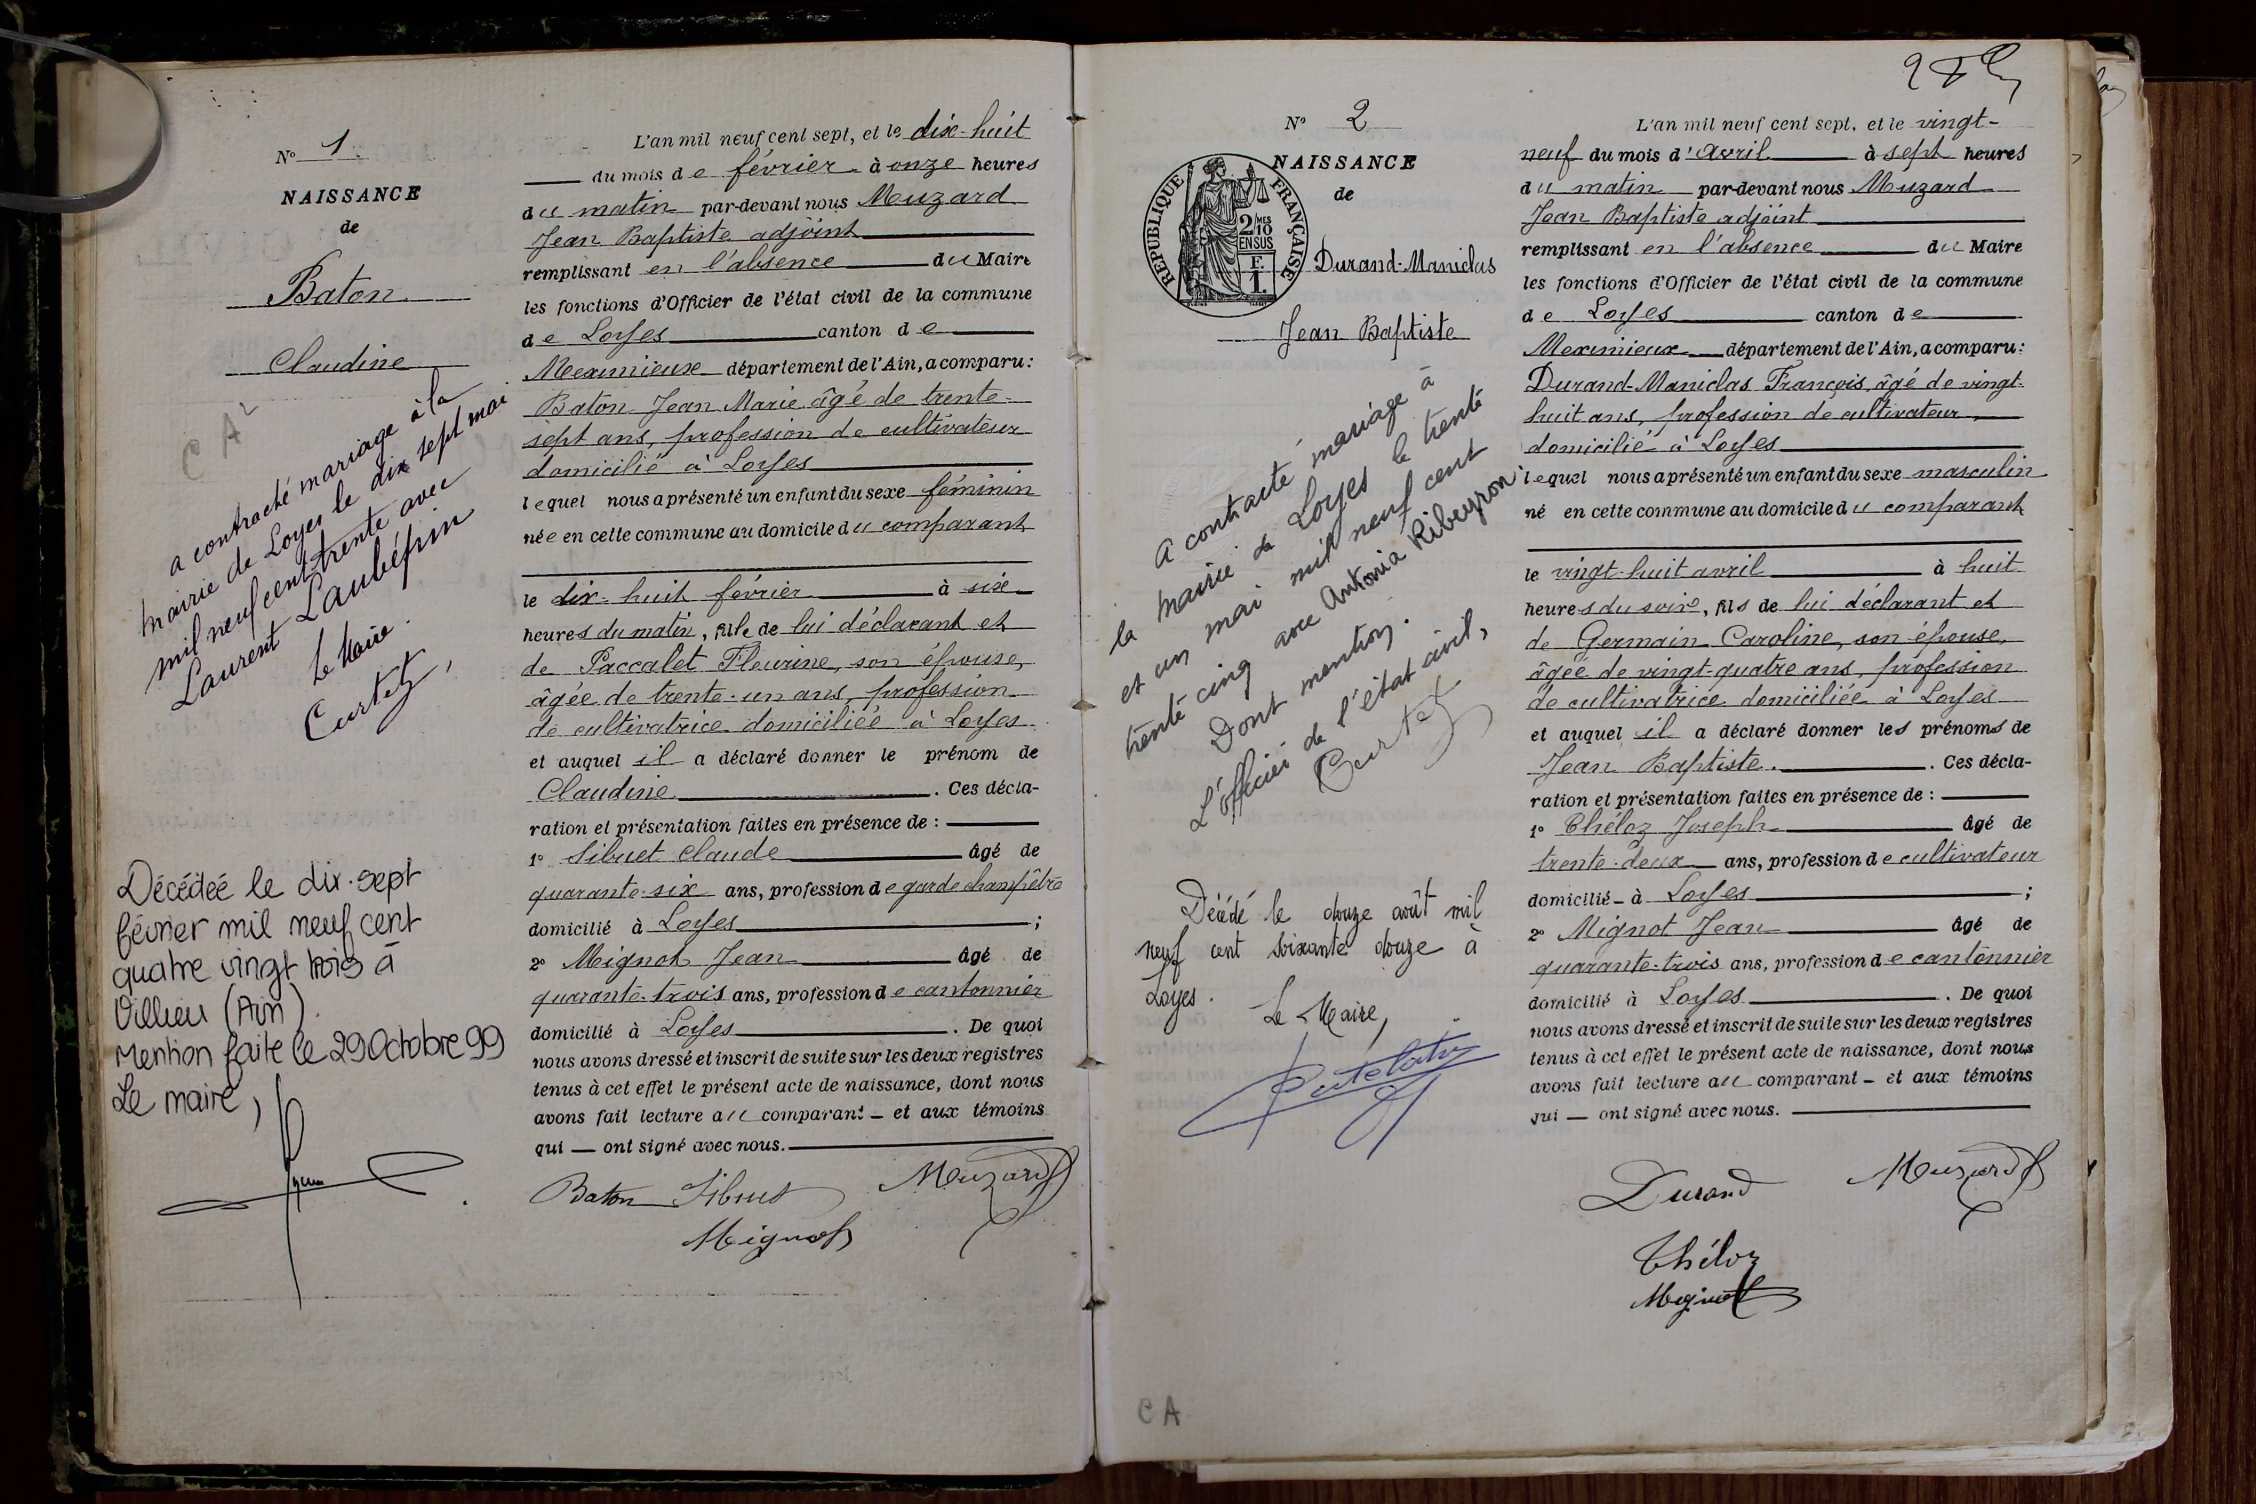 N° 1
NAISSANCE
de
Baton
Claudine
CA
a contracté mariage à la
mairie de Loyes le dix sept mai
mil neuf cent trente avec
Laurent Laubépin
Le Maire.
Curtet,
Décédeé le dix-sept
février mil neuf cent
quatre vingt trois à
Villieu (Ain).
Mention faite le 29 Octobre 99
Le maire,
L'an mil neuf cent sept, et le dix-huit
du mois de février à onze heures
du matin par-devant nous Muzard
Jean Baptiste adjoint
remplissant en l'absence du Maire
les fonctions d'Officier de l'état civil de la commune
de Loyes canton de
Meximieux département de l'Ain, a comparu:
Baton Jean Marie âgé de trente-
sept ans, profession de cultivateur
domicilié à Loyes
lequel nous a présenté un enfant du sexe féminin
née en cette commune au domicile du comparant
le dix-huit février à six
heures du matin, fille de lui déclarant et
de Paccalet Fleurine, son épouse,
âgée de trente-un ans, profession
de cultivatrice domiciliée à Loyes
et auquel il a déclaré donner le prénom de
Claudine. Ces décla-
ration et présentation faites en présence de :
1° Sibuet Claude âgé de
quarante-six ans, profession de garde champêtre
domicilié à Loyes ;
2° Mignot Jean âgé de
quarante-trois ans, profession de cantonnier
domicilié à Loyes. De quoi
nous avons dressé et inscrit de suite sur les deux registres
tenus à cet effet le présent acte de naissance, dont nous
avons fait lecture au comparant - et aux témoins
qui — ont signé avec nous.
Baton Sibuet Muzard
Mignot
N° 2
NAISSANCE
de
REPUBLIQUE FRANÇAISE
2/10 MES
EN SUS
F.
1.
Durand-Maniclas
Jean Baptiste
A contracté mariage à
la mairie de Loyes le trente
et un mai mil neuf cent
trente cinq avec Antonia Ribeyron.
Dont mention.
L'officier de l'état civil,
Curtet
Décédé le douze août mil
neuf cent soixante douze à
Loyes.
Le Maire,
CA
L'an mil neuf cent sept, et le vingt-
neuf du mois d'avril à sept heures
du matin par-devant nous Muzard
Jean Baptiste adjoint
remplissant en l'absence du Maire
les fonctions d'Officier de l'état civil de la commune
de Loyes canton de
Meximieux département de l'Ain, a comparu:
Durand-Maniclas François, âgé de vingt-
huit ans, profession de cultivateur,
domicilié à Loyes
lequel nous a présenté un enfant du sexe masculin
né en cette commune au domicile du comparant
le vingt-huit avril à huit
heures du soir, fils de lui déclarant et
de Germain Caroline, son épouse,
âgée de vingt-quatre ans, profession
de cultivatrice domiciliée à Loyes
et auquel il a déclaré donner les prénoms de
Jean Baptiste. Ces décla-
ration et présentation faites en présence de :
1° Théloz Joseph âgé de
trente-deux ans, profession de cultivateur
domicilié - à Loyes ;
2° Mignot Jean âgé de
quarante-trois ans, profession de cantonnier
domicilié à Loyes. De quoi
nous avons dressé et inscrit de suite sur les deux registres
tenus à cet effet le présent acte de naissance, dont nous
avons fait lecture au comparant - et aux témoins
qui — ont signé avec nous.
Durand Muzard
Théloz
Mignot